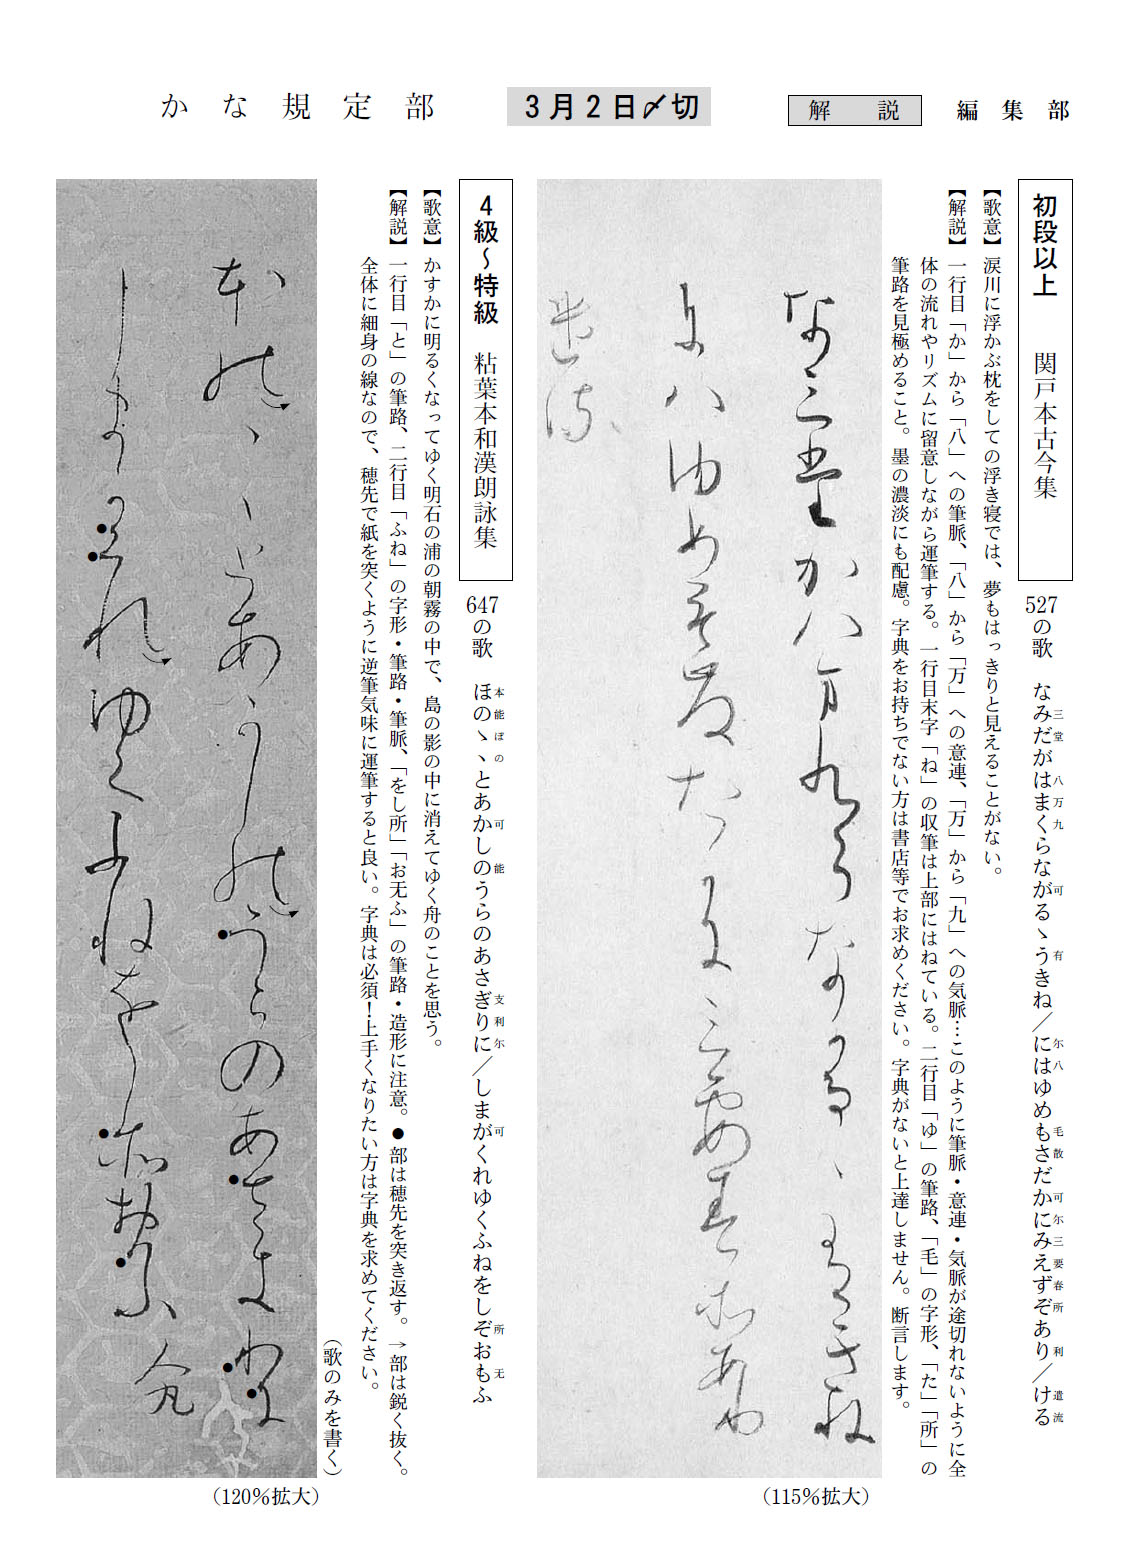 かな規定部
3月2日〆切
解説
編集部
初段以上 関戸本古今集
527の歌 なみだがはまくらながるゝうきね／にはゆめもさだかにみえずぞあり／ける
三堂八万九可有尓八毛散可尓三要春所利遣流
【歌意】涙川に浮かぶ枕をしての浮き寝では、夢もはっきりと見えることがない。
【解説】一行目「か」から「八」への筆脈、「八」から「万」への意連、「万」から「九」への気脈…このように筆脈・意連・気脈が途切れないように全
体の流れやリズムに留意しながら運筆する。一行目末字「ね」の収筆は上部にはねている。二行目「ゆ」の筆路、「毛」の字形、「た」「所」の
筆路を見極めること。墨の濃淡にも配慮。字典をお持ちでない方は書店等でお求めください。字典がないと上達しません。断言します。
な三堂かハ万九らなかるゝ有きね
尓ハゆめ毛散たか尓三要春所あり
遣流
（115％拡大）
4級～特級 粘葉本和漢朗詠集
647の歌 ほのゝゝとあかしのうらのあさぎりに／しまがくれゆくふねをしぞおもふ
本能ぼの可能支利尓可所无
【歌意】かすかに明るくなってゆく明石の浦の朝霧の中で、島の影の中に消えてゆく舟のことを思う。
【解説】一行目「と」の筆路、二行目「ふね」の字形・筆路・筆脈、「をし所」「お无ふ」の筆路・造形に注意。●部は穂先を突き返す。→部は鋭く抜く。
全体に細身の線なので、穂先で紙を突くように逆筆気味に運筆すると良い。字典は必須！上手くなりたい方は字典を求めてください。
（歌のみを書く）
本能ゝゝとあかし能うらのあさ支利尓
しまかくれゆくふねをし所お无ふ
（120％拡大）